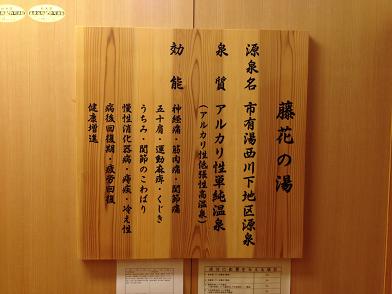 藤花の湯
源泉名 市有湯西川下地区源泉
泉質 アルカリ性単純温泉
(アルカリ性低張性高温泉)
効能 神経痛・筋肉痛・関節痛
五十肩・運動麻痺・くじき
うちみ・関節のこわばり
慢性消化器病・痔疾・冷え性
病後回復期・疲労回復
健康増進